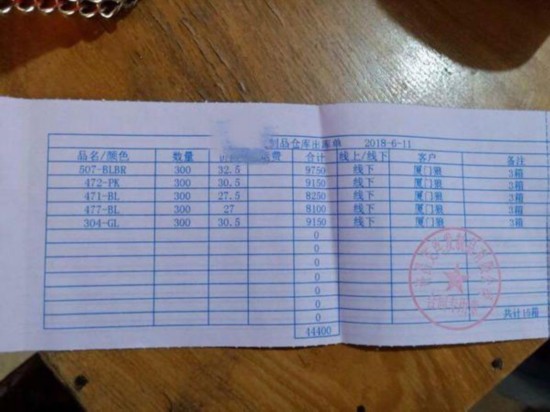 制品仓库出库单 2018-6-11
品名/颜色 数量 费 合计 线上/线下 客户 备注
507-BLBR 300 32.5 9750 线下 厦门狼 3箱
472-PK 300 30.5 9150 线下 厦门狼 3箱
471-BL 300 27.5 8250 线下 厦门狼 3箱
477-BL 300 27 8100 线下 厦门狼 3箱
304-GL 300 30.5 9150 线下 厦门狼 3箱
0
0
0
0
0
0
0
共计15箱
44400